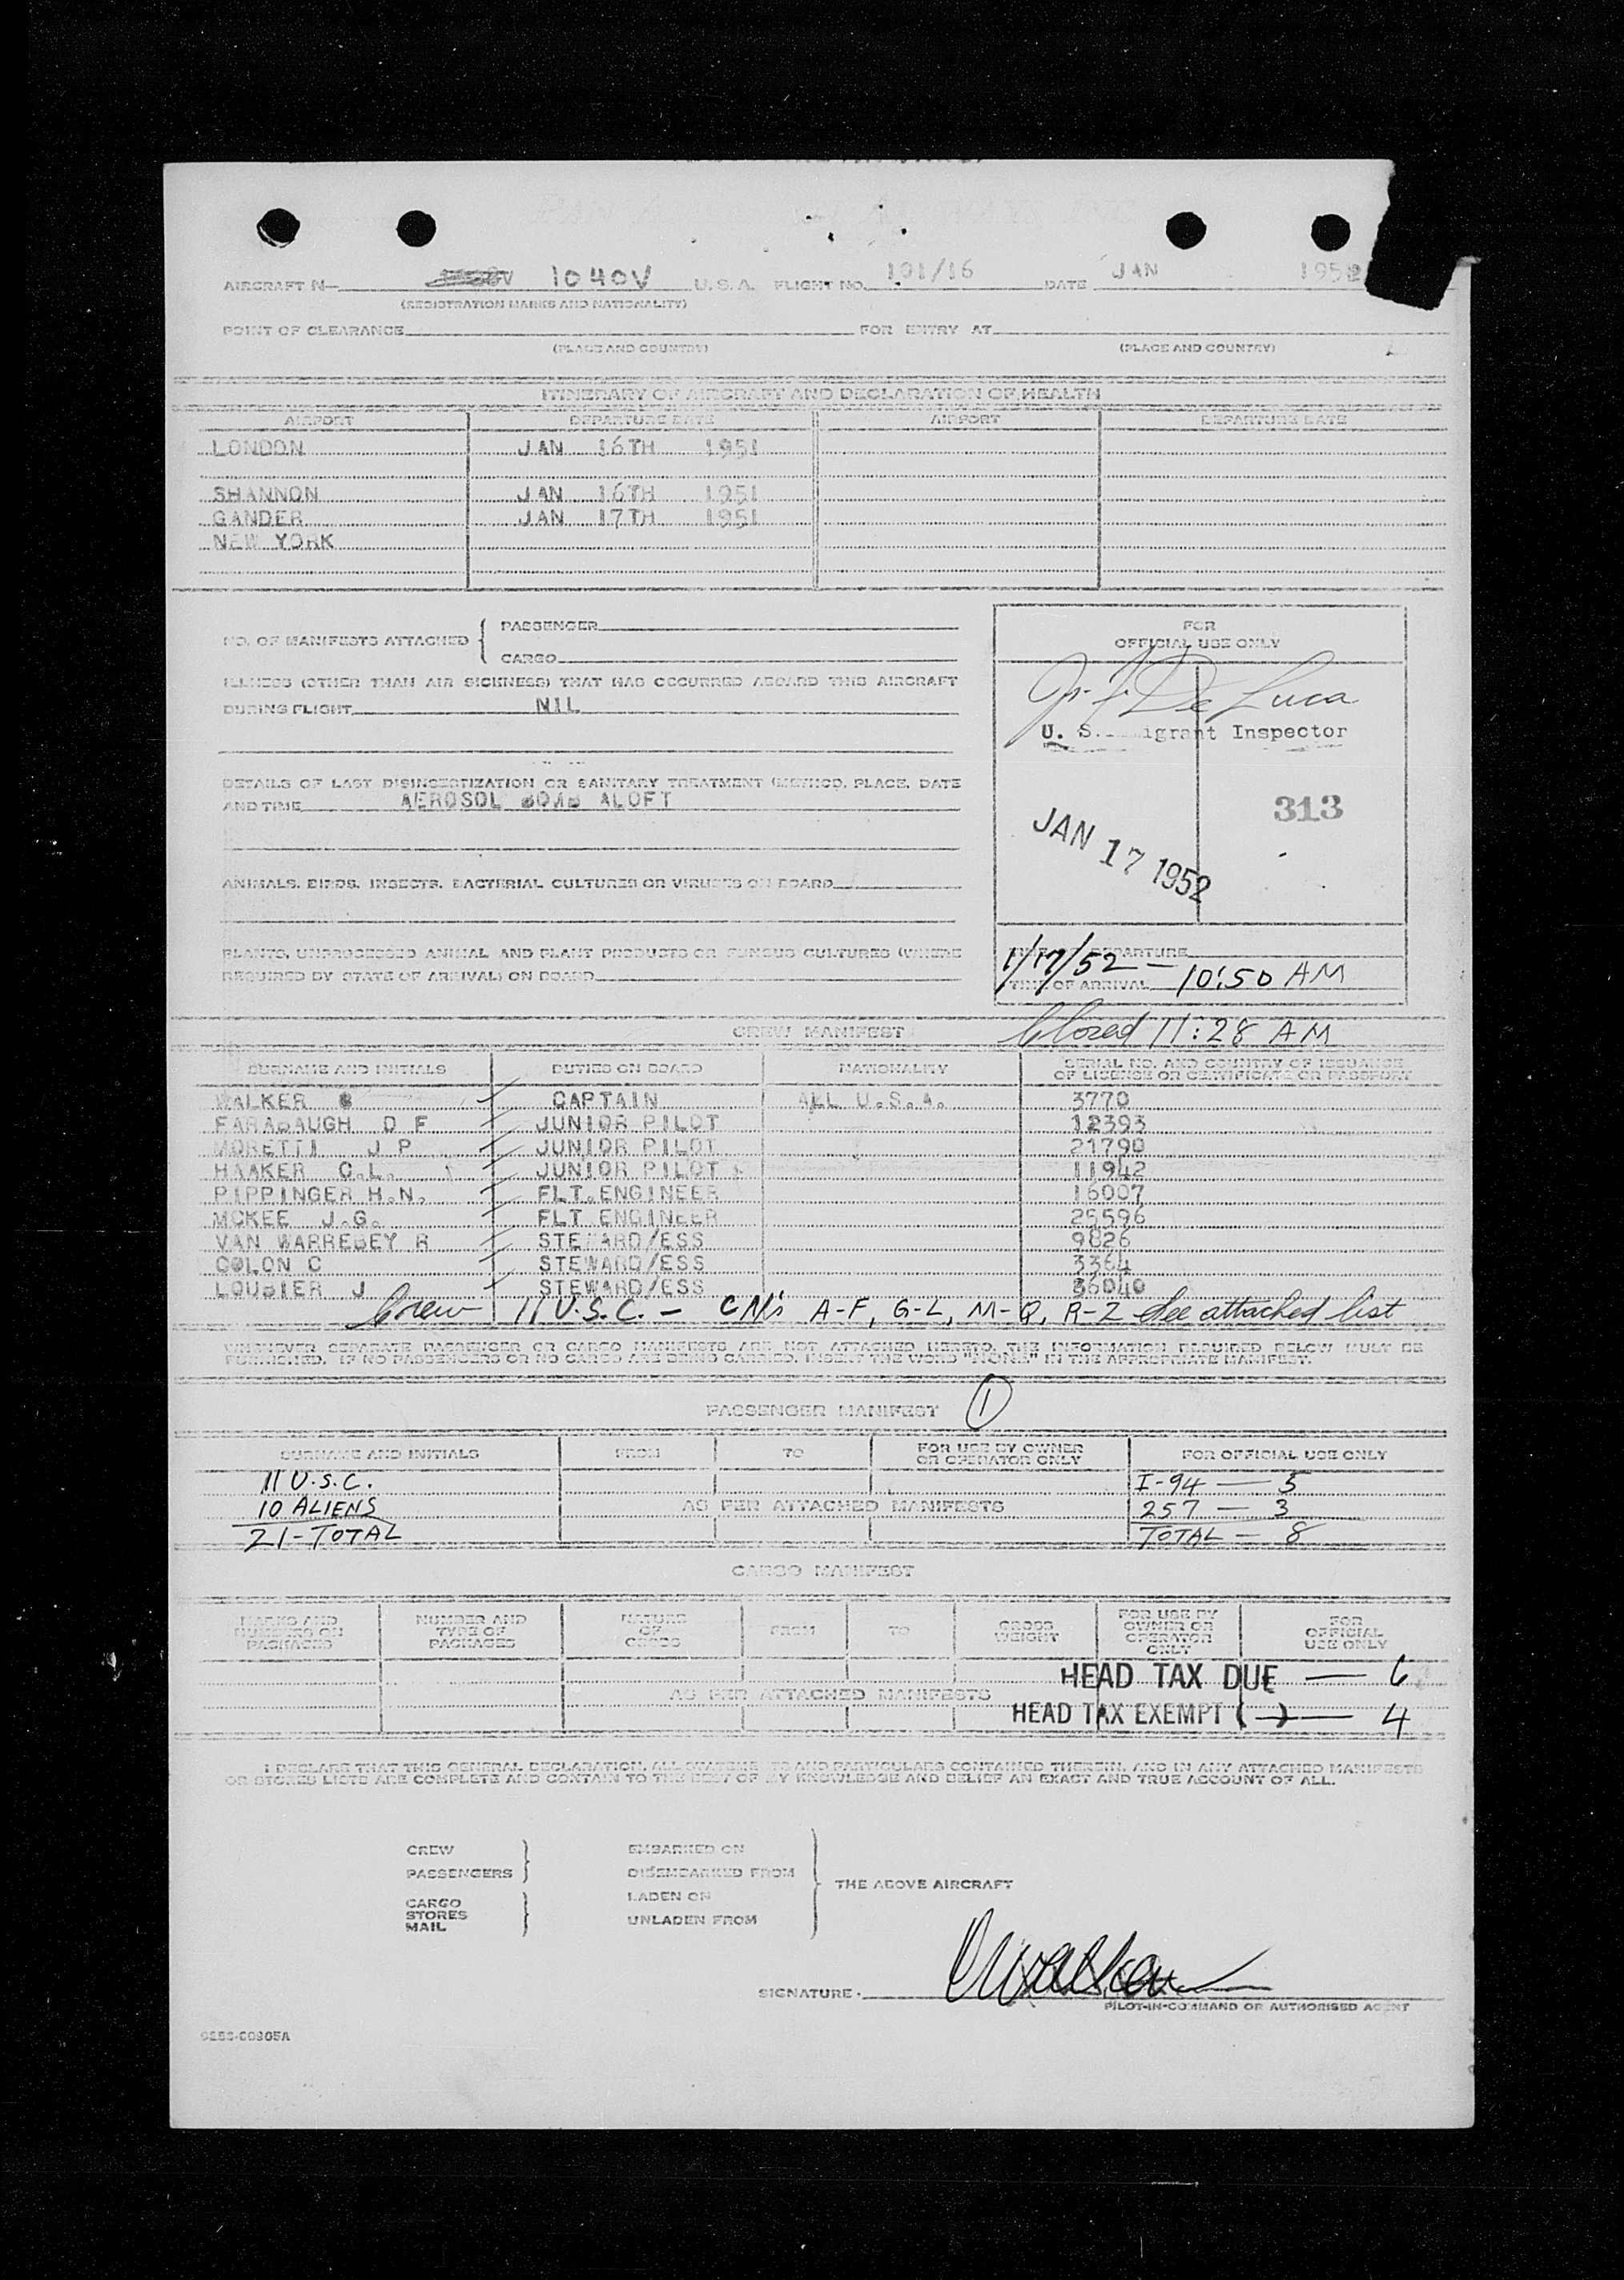 AIRCRAFT N- 1040V U.S.A. FLIGHT NO. 101/16 DATE JAN 1952
(REGISTRATION MARKS AND NATIONALITY)
POINT OF CLEARANCE FOR ENTRY AT
(PLACE AND COUNTRY) (PLACE AND COUNTRY)
ITINERARY OF AIRCRAFT AND DECLARATION OF HEALTH
AIRPORT DEPARTURE DATE AIRPORT DEPARTURE DATE
LONDON JAN 16TH 1951
SHANNON JAN 16TH 1951
GANDER JAN 17TH 1951
NEW YORK
NO. OF MANIFESTS ATTACHED { PASSENGER
CARGO
ILLNESS (OTHER THAN AIR SICKNESS) THAT HAS OCCURRED ABOARD THIS AIRCRAFT
DURING FLIGHT NIL
DETAILS OF LAST DISINSECTIZATION OR SANITARY TREATMENT (METHOD, PLACE, DATE
AND TIME AEROSOL BOMB ALOFT
ANIMALS, BIRDS, INSECTS, BACTERIAL CULTURES OR VIRUSES ON BOARD
PLANTS, UNPROCESSED ANIMAL AND PLANT PRODUCTS OR FUNGUS CULTURES (WHERE
REQUIRED BY STATE OF ARRIVAL) ON BOARD
FOR
OFFICIAL USE ONLY
De Luca
U. S. igrant Inspector
313
JAN 17 1952
TIME OF DEPARTURE
1/17/52 —
TIME OF ARRIVAL 10:50 AM
CREW MANIFEST Closed 11:28 AM
SURNAME AND INITIALS DUTIES ON BOARD NATIONALITY SERIAL NO. AND COUNTRY OF ISSUANCE
OF LICENSE OR CERTIFICATE OR PASSPORT
WALKER CAPTAIN ALL U.S.A. 3770
FARABAUGH D F JUNIOR PILOT 12393
MORETTI J P JUNIOR PILOT 21790
HAAKER C.L. JUNIOR PILOT 11942
PIPPINGER H.N. FLT.ENGINEER 16007
MCKEE J.G. FLT ENGINEER 25596
VAN WARREBEY R STEWARD/ESS 9826
COLON C STEWARD/ESS 3364
LOUBIER J STEWARD/ESS 36040
Crew 11 U.S.C. — CN's A-F, G-L, M-Q, R-Z See attached list
WHENEVER SEPARATE PASSENGER OR CARGO MANIFESTS ARE NOT ATTACHED HERETO, THE INFORMATION REQUIRED BELOW MUST BE
FURNISHED. IF NO PASSENGERS OR NO CARGO ARE BEING CARRIED, INSERT THE WORD "NONE" IN THE APPROPRIATE MANIFEST.
PASSENGER MANIFEST 1
SURNAME AND INITIALS FROM TO FOR USE BY OWNER
OR OPERATOR ONLY FOR OFFICIAL USE ONLY
11 U.S.C. I-94 — 5
10 ALIENS AS PER ATTACHED MANIFESTS 257 — 3
21-TOTAL TOTAL — 8
CARGO MANIFEST
MARKS AND
NUMBERS ON
PACKAGES
NUMBER AND
TYPE OF
PACKAGES
NATURE
OF
GOODS
FROM TO
GROSS
WEIGHT
FOR USE BY
OWNER OR
OPERATOR
ONLY
FOR
OFFICIAL
USE ONLY
HEAD TAX DUE — 6
AS PER ATTACHED MANIFESTS
HEAD TAX EXEMPT (—) — 4
I DECLARE THAT THIS GENERAL DECLARATION, ALL STATEMENTS AND PARTICULARS CONTAINED THEREIN, AND IN ANY ATTACHED MANIFESTS
OR STORES LISTS ARE COMPLETE AND CONTAIN TO THE BEST OF MY KNOWLEDGE AND BELIEF AN EXACT AND TRUE ACCOUNT OF ALL.
CREW EMBARKED ON
PASSENGERS DISEMBARKED FROM
THE ABOVE AIRCRAFT
CARGO LADEN ON
STORES
MAIL UNLADEN FROM
SIGNATURE. Walker
PILOT-IN-COMMAND OR AUTHORISED AGENT